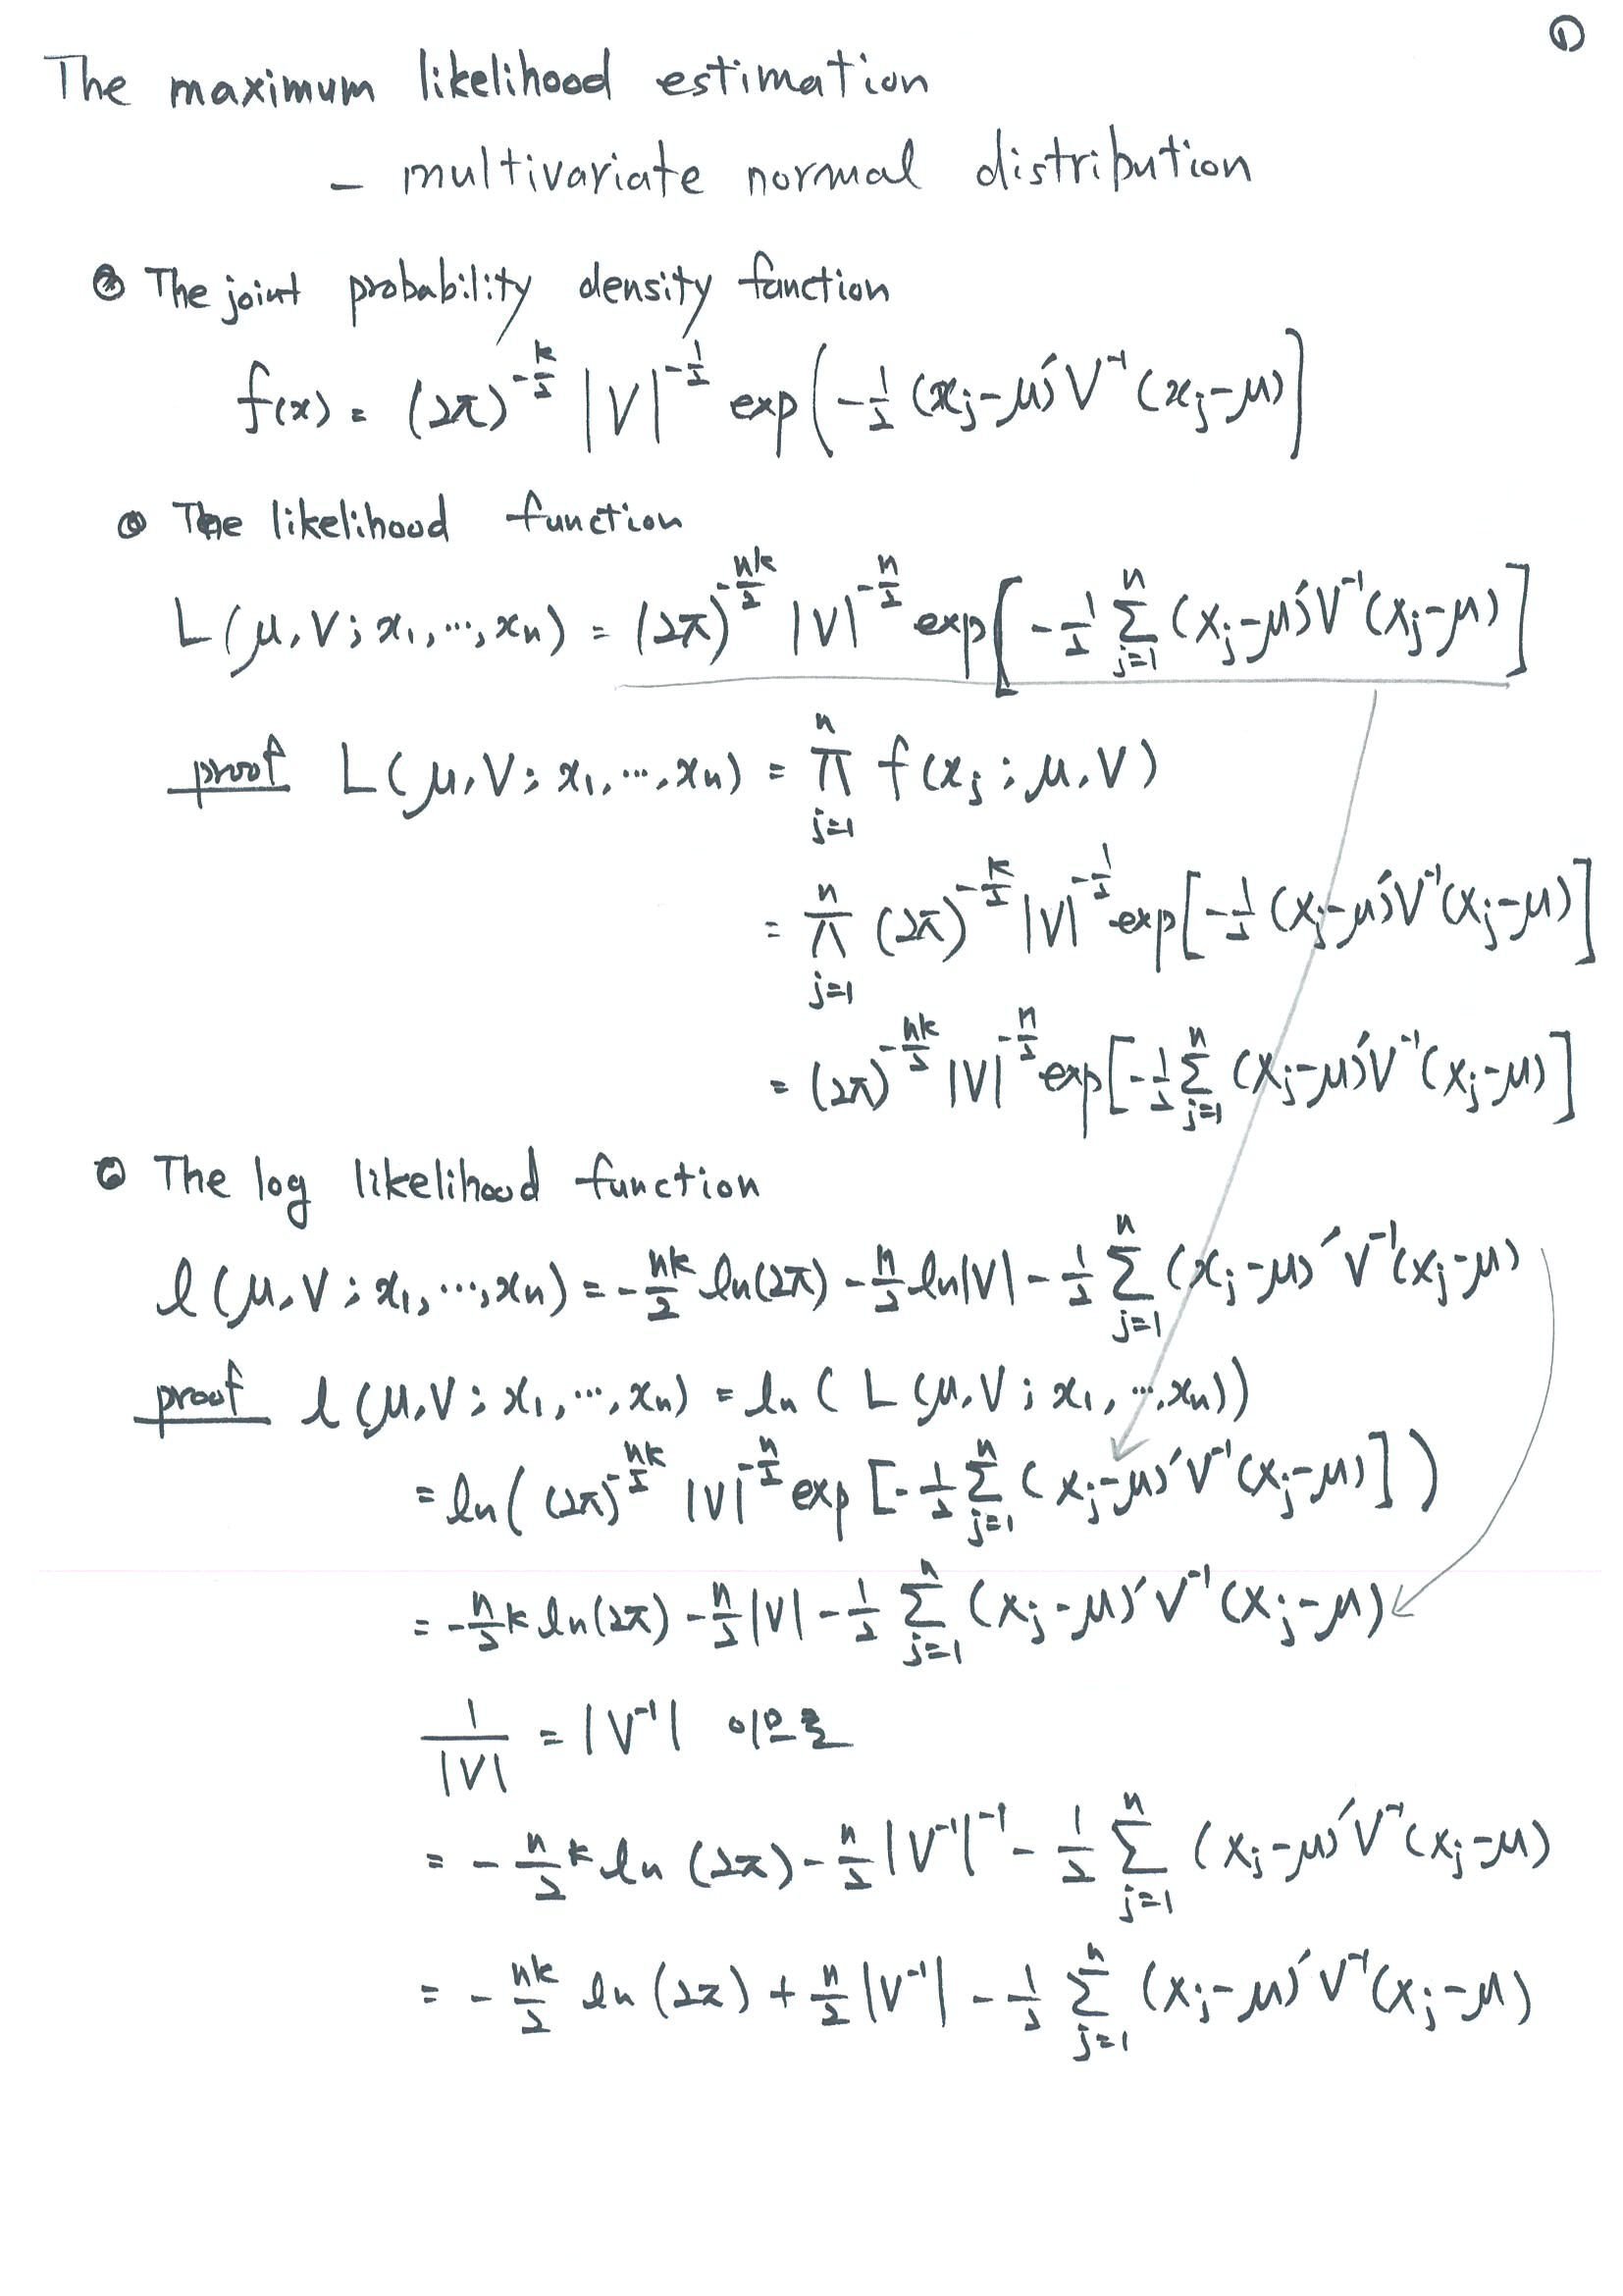 ①
The maximum likelihood estimation
- multivariate normal distribution
The joint probability density function
f(x) = (2π)^{-k/2} |V|^{-1/2} exp(-1/2 (x_j-μ)'V^{-1}(x_j-μ)]
The likelihood function
L(μ, V; x_1, ..., x_n) = (2π)^{-nk/2} |V|^{-n/2} exp[-1/2 Σ_{j=1}^{n} (x_j-μ)'V^{-1}(x_j-μ)]
proof L(μ, V; x_1, ..., x_n) = π_{j=1}^{n} f(x_j; μ, V)
= π_{j=1}^{n} (2π)^{-k/2} |V|^{-1/2} exp[-1/2 (x_j-μ)'V^{-1}(x_j-μ)]
= (2π)^{-nk/2} |V|^{-n/2} exp[-1/2 Σ_{j=1}^{n} (x_j-μ)'V^{-1}(x_j-μ)]
The log likelihood function
l(μ, V; x_1, ..., x_n) = -nk/2 ln(2π) - n/2 ln|V| - 1/2 Σ_{j=1}^{n} (x_j-μ)'V^{-1}(x_j-μ)
proof l(μ, V; x_1, ..., x_n) = ln(L(μ, V; x_1, ..., x_n))
= ln((2π)^{-nk/2} |V|^{-n/2} exp[-1/2 Σ_{j=1}^{n} (x_j-μ)'V^{-1}(x_j-μ)])
= -n/2 k ln(2π) - n/2 |V| - 1/2 Σ_{j=1}^{n} (x_j-μ)'V^{-1}(x_j-μ)
1/|V| = |V^{-1}| 이므로
= -n/2 k ln(2π) - n/2 |V^{-1}|^{-1} - 1/2 Σ_{j=1}^{n} (x_j-μ)'V^{-1}(x_j-μ)
= -nk/2 ln(2π) + n/2 |V^{-1}| - 1/2 Σ_{j=1}^{n} (x_j-μ)'V^{-1}(x_j-μ)